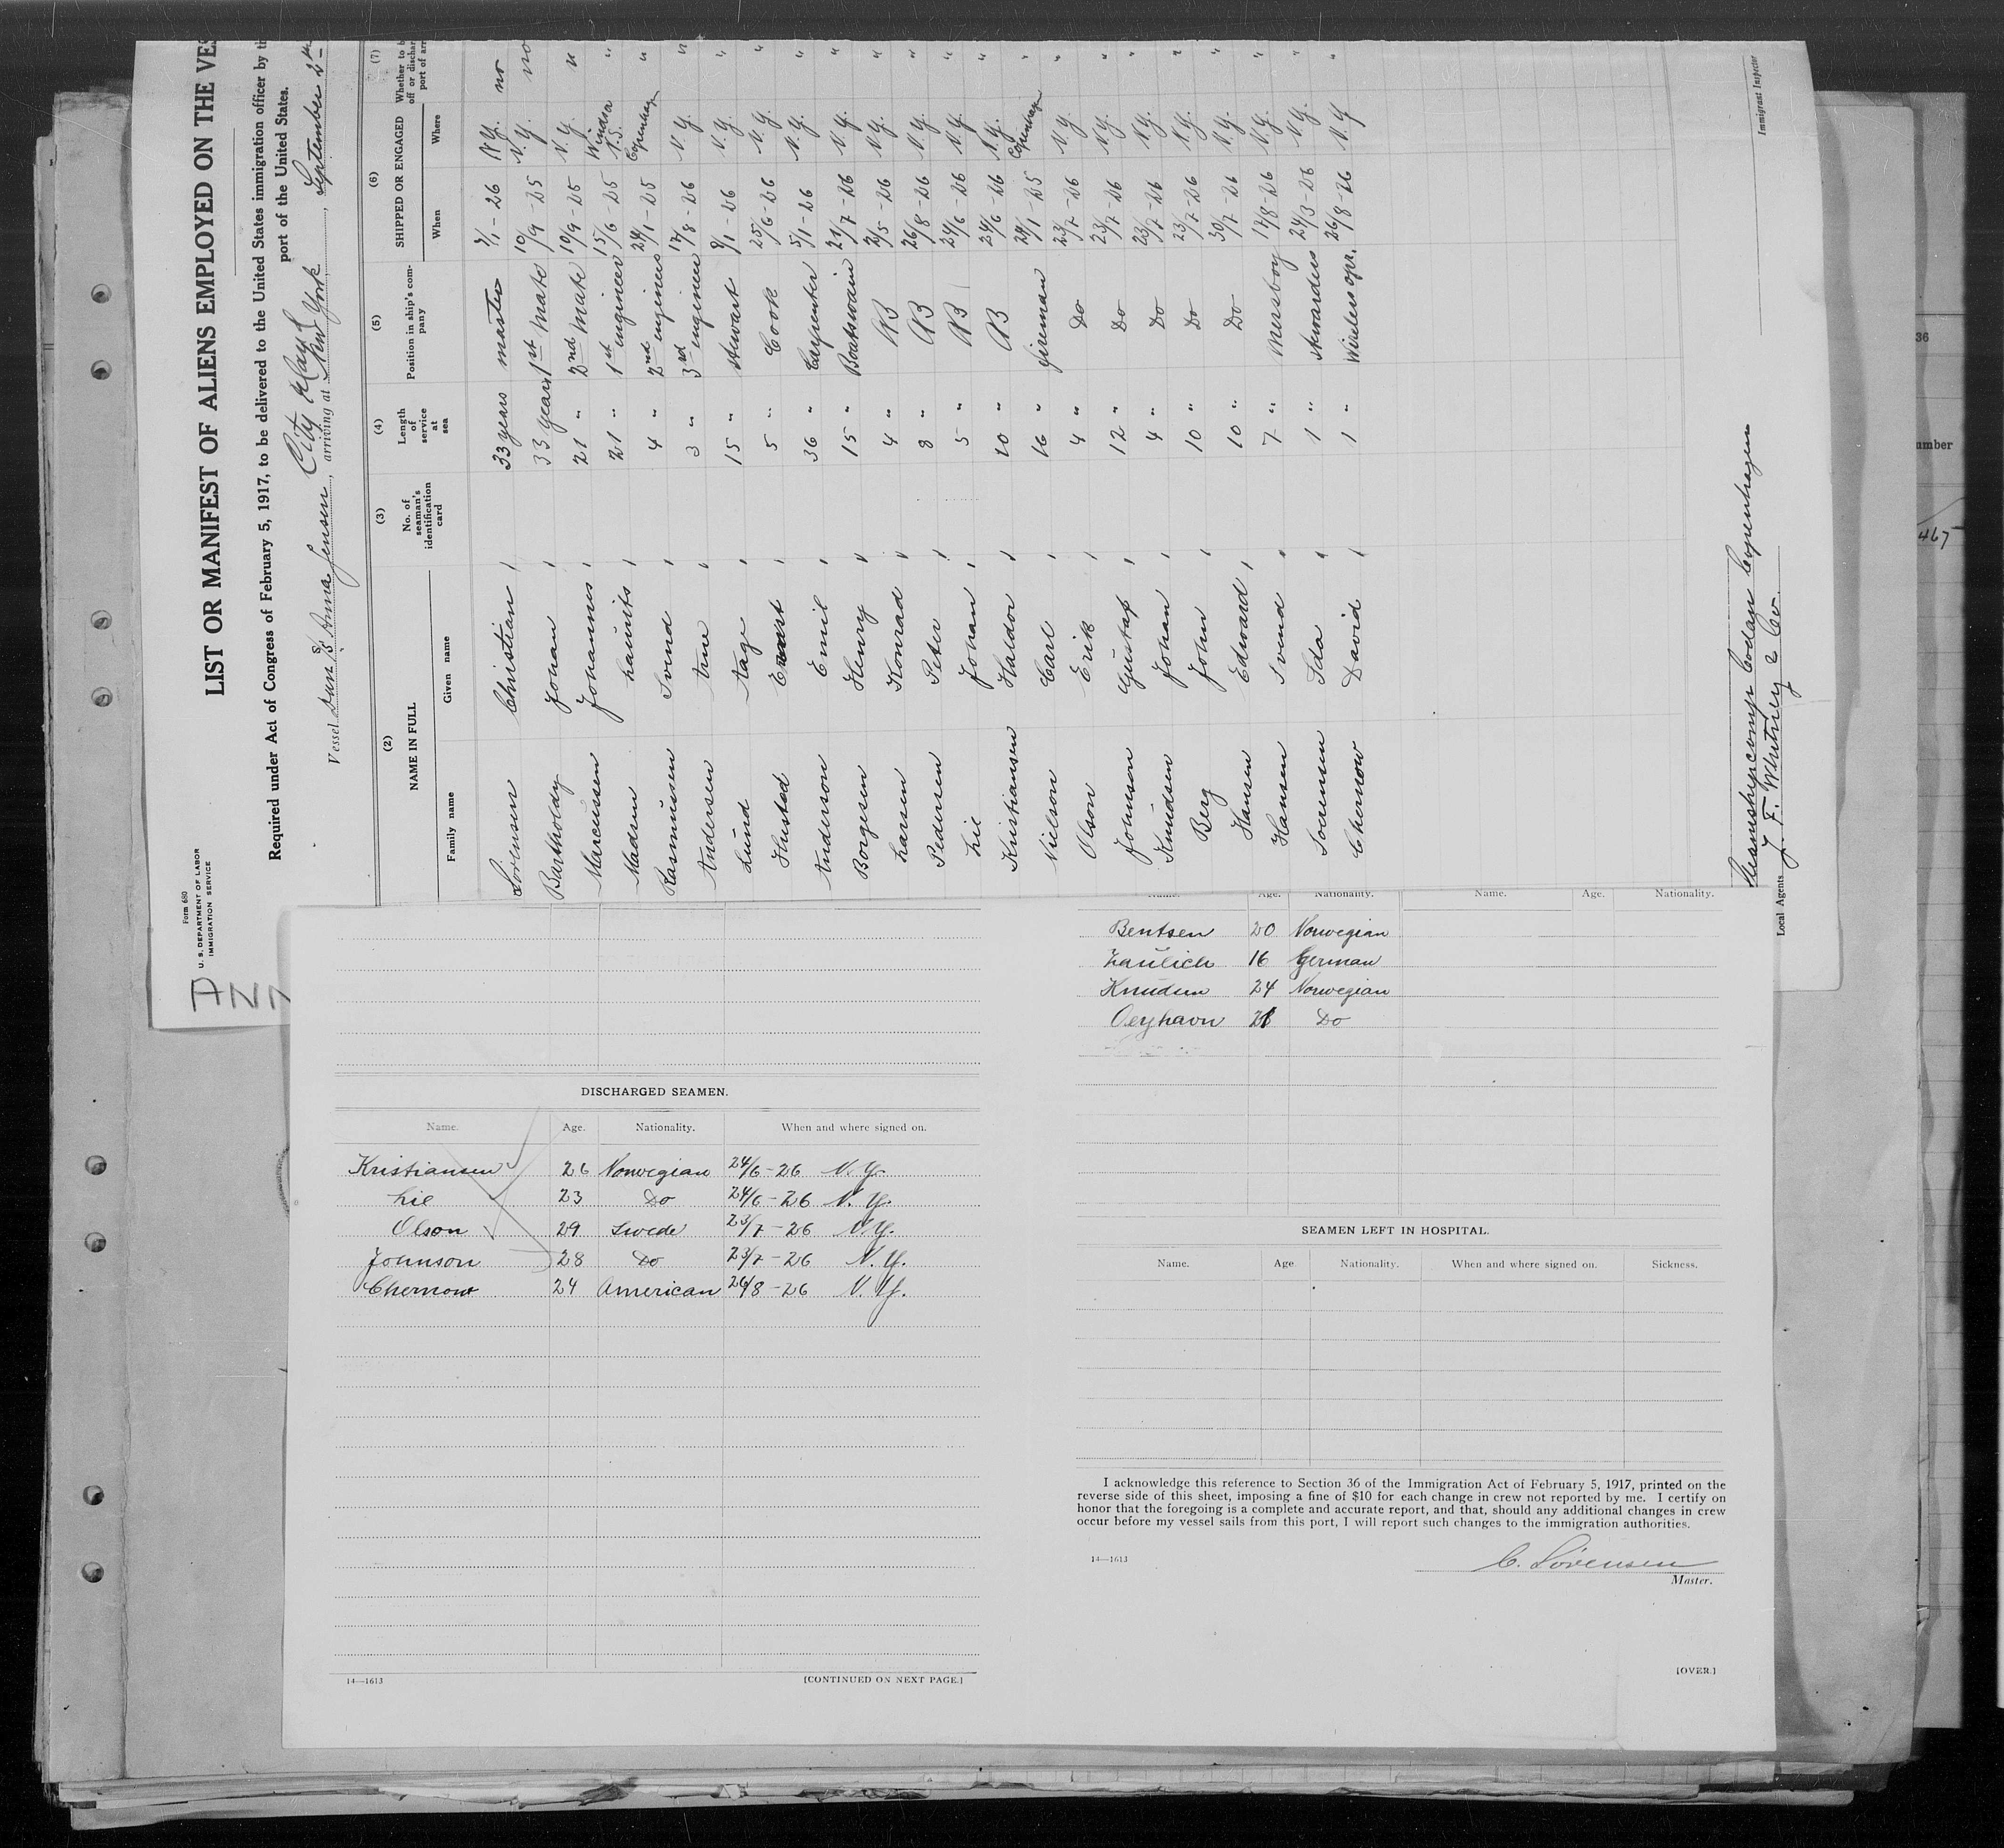 Form 680
U. S. DEPARTMENT OF LABOR
IMMIGRATION SERVICE
LIST OR MANIFEST OF ALIENS EMPLOYED ON THE VES
Required under Act of Congress of February 5, 1917, to be delivered to the United States immigration officer by t
port of the United States.
Vessel Dan. S/S Anna Sorensen, arriving at New York, September 2nd
(2) (3) (4) (5) (6) (7)
NAME IN FULL No. of seaman's identification card Length of service at sea Position in ship's company SHIPPED OR ENGAGED
Family name Given name When Where
Sorensen Christian 33 years master 7/1-26 N.Y. no
Bartholdy Johan 33 years 1st Mate 10/9-25 N.Y. no
Marcussen Johannes 21 " 2nd Mate 10/9-25 N.Y. "
Madsen Laurits 21 " 1st engineer 15/6-25 Windsor N.S. "
Rasmussen Svend 4 " 2nd engineer 24/1-25 Copenhag "
Andersen Arne 3 " 3rd engineer 17/8-26 N.Y. "
Lund Aage 15 " stewart 9/1-26 N.Y. "
Husted 5 " Cook 25/6-26 N.Y. "
Anderson Emil 36 " Carpenter 5/1-26 N.Y. "
Borgesen Henry 15 " Boatswain 21/7-26 N.Y. "
Larsen Konrad 4 " AB 2/5-26 N.Y. "
Pedersen Peter 8 " AB 26/8-26 N.Y. "
Lie Johan 5 " AB 24/6-26 N.Y. "
Kristiansen Haldor 10 " AB 24/6-26 N.Y. "
Nielson Carl 16 " fireman 29/1-25 Copenhagn "
Olson Erik 4 " Do 23/7-26 N.Y. "
Johnson Gustaf 12 " Do 23/7-26 N.Y. "
Knudsen Johan 4 " Do 23/7-26 N.Y. "
Berg John 10 " Do 23/7-26 N.Y. "
Hansen Edward 10 " Do 30/7-26 N.Y. "
Hansen Svend 7 " Messboy 17/8-26 N.Y. "
Soerensen Ida 1 " stewardess 24/3-26 N.Y. "
Chernow David 1 " Wireless opr. 26/8-26 N.Y. "
Local Agents J. F. Whitney & Co.
Immigrant Inspector
Name. Age. Nationality. Name. Age. Nationality.
Bentsen 20 Norwegian
Laulich 16 German
Knudsen 24 Norwegian
Oeyhavn Do
DISCHARGED SEAMEN.
Name. Age. Nationality. When and where signed on.
Kristiansen 26 Norwegian 24/6-26 N.Y.
Lie 23 Do 24/6-26 N.Y.
Olson 29 Swede 23/7-26 N.Y.
Johnson 28 Do 23/7-26 N.Y.
Chernow 24 American 26/8-26 N.Y.
14—1613 [CONTINUED ON NEXT PAGE.]
SEAMEN LEFT IN HOSPITAL.
Name. Age. Nationality. When and where signed on. Sickness.
I acknowledge this reference to Section 36 of the Immigration Act of February 5, 1917, printed on the
reverse side of this sheet, imposing a fine of $10 for each change in crew not reported by me. I certify on
honor that the foregoing is a complete and accurate report, and that, should any additional changes in crew
occur before my vessel sails from this port, I will report such changes to the immigration authorities.
14—1613
C. Sörensen
Master.
[OVER.]
36
umber
467